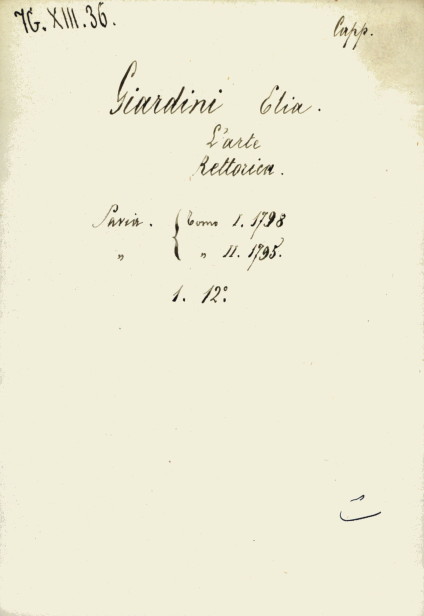 7G.XIII.36.
Capp.
Giardini Elia.
L'arte
Rettorica.
Pavia. { Tomo I. 1798
" " II. 1795.
1. 12°.